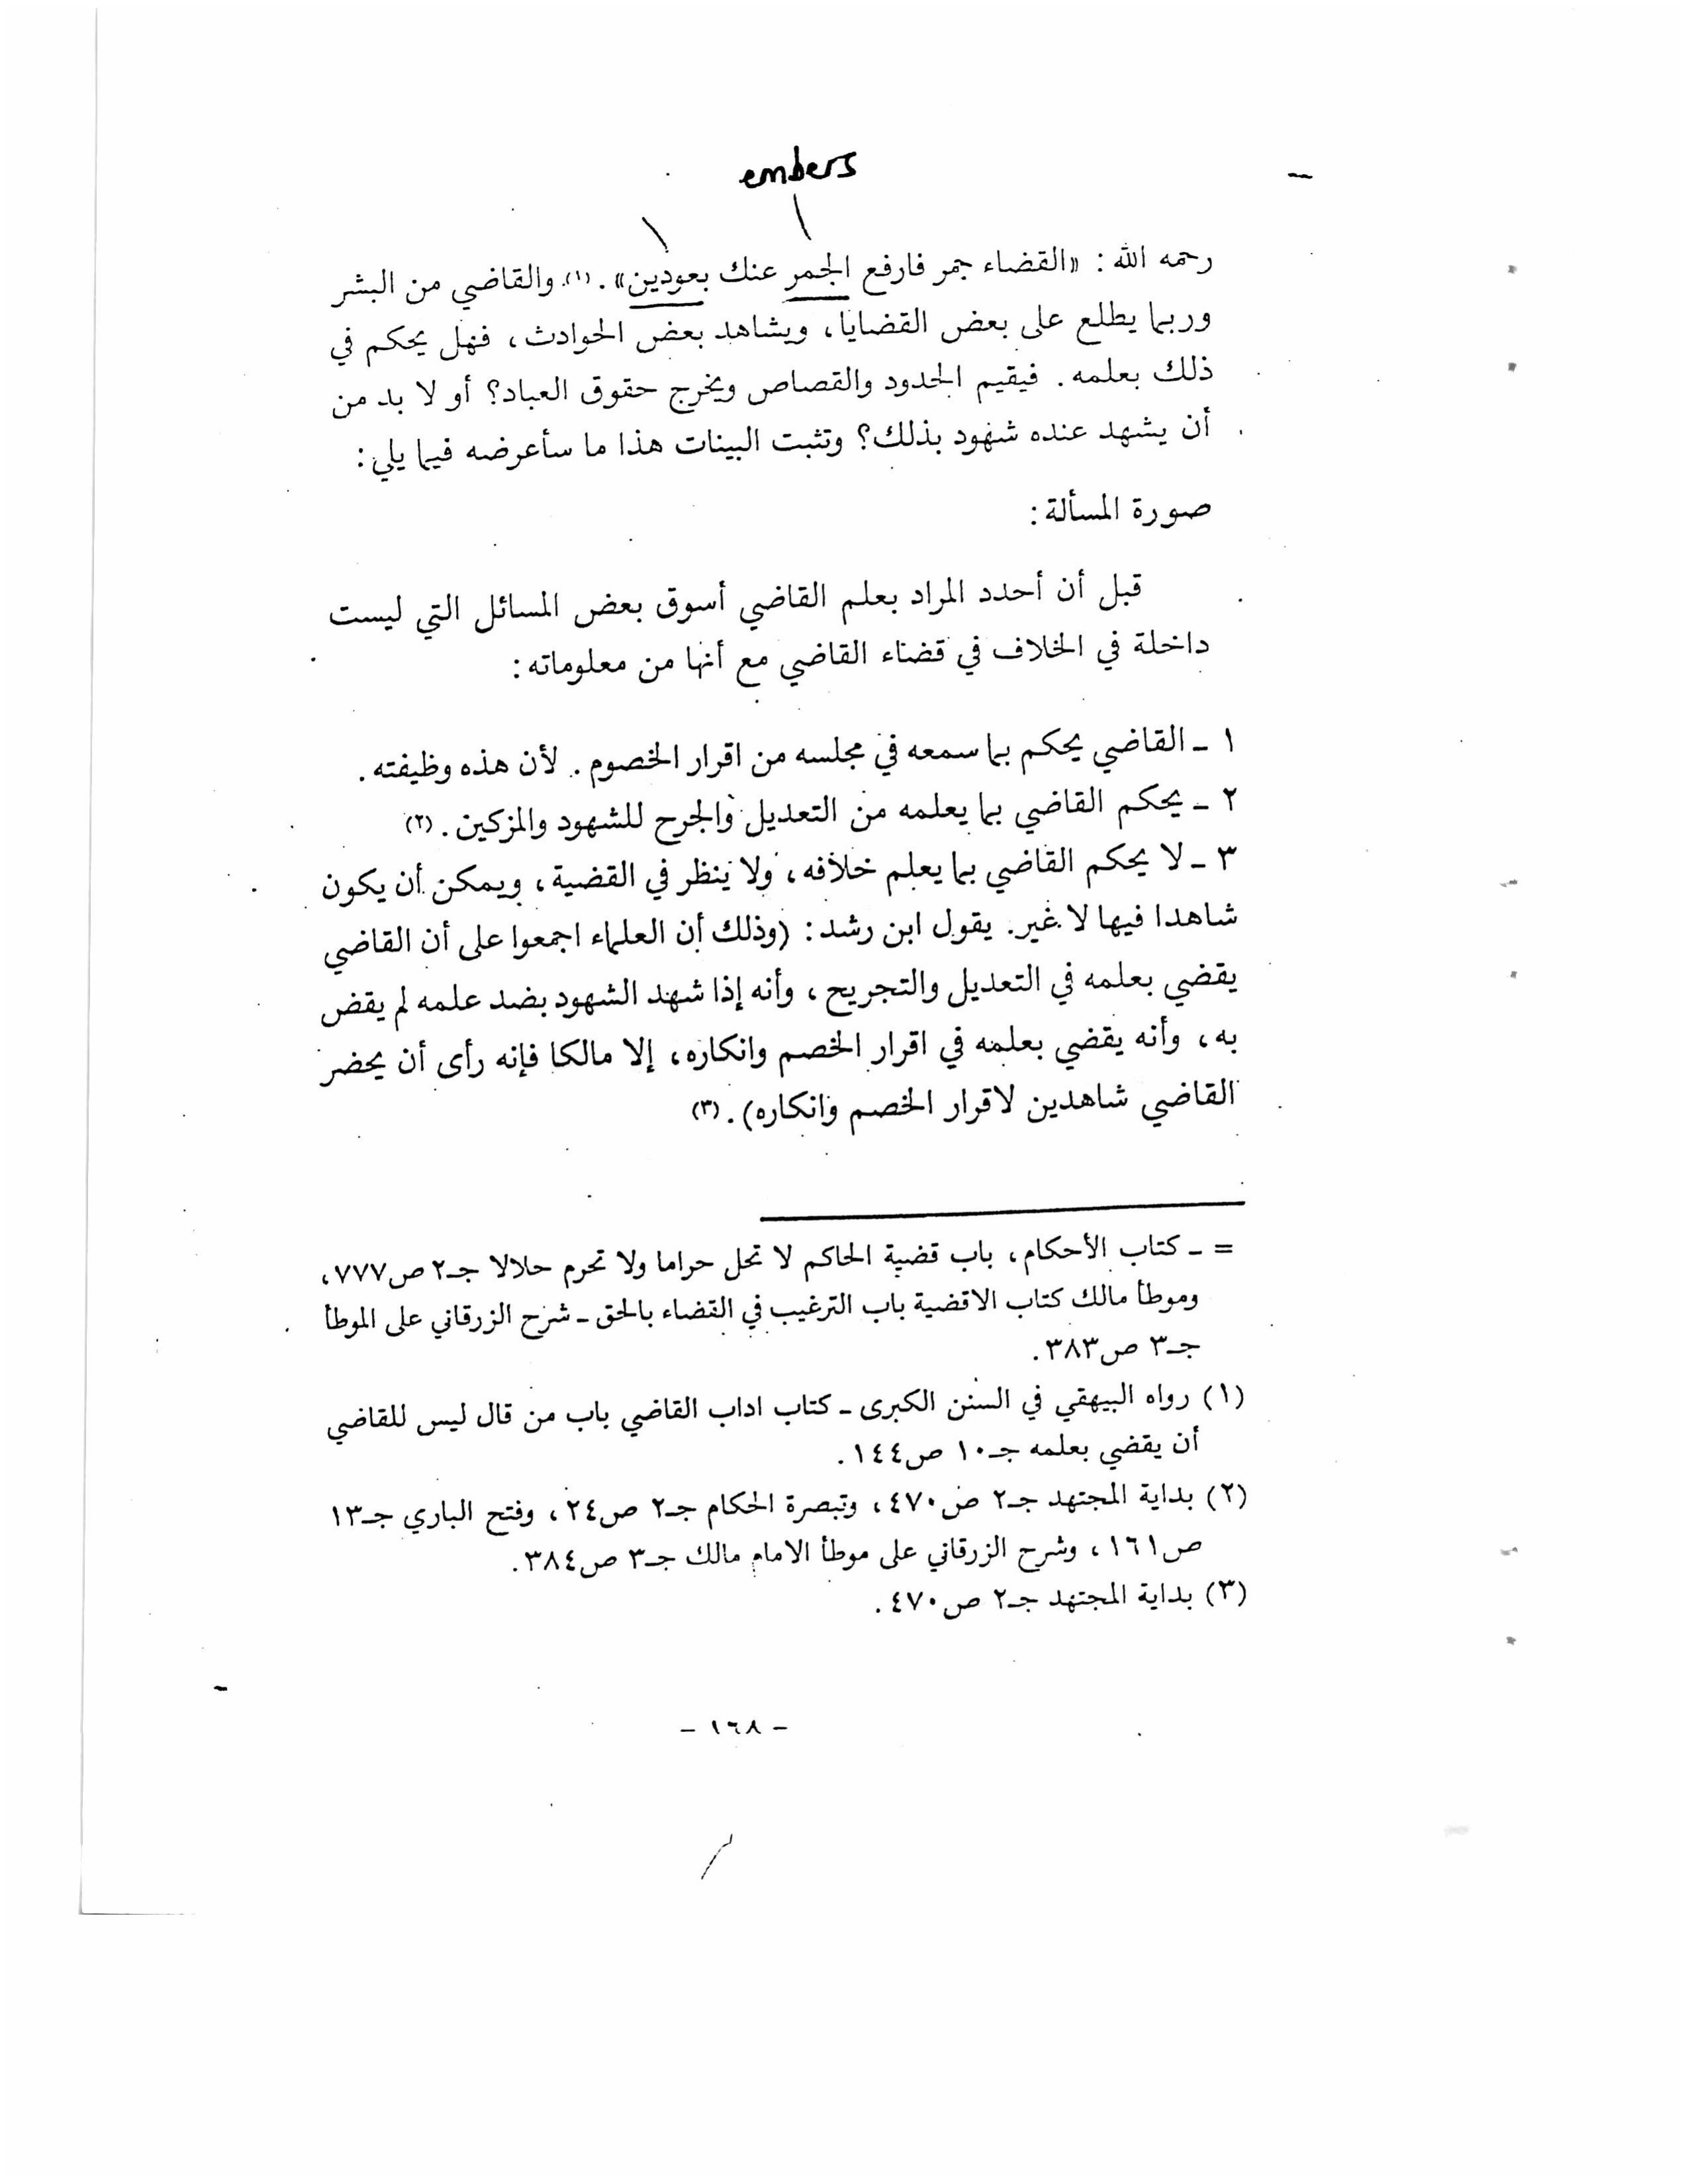 embers
رحمه الله: «القضاء جمر فارفع الجمر عنك بعودين». (١) والقاضي من البشر
وربما يطلع على بعض القضايا، ويشاهد بعض الحوادث، فهل يحكم في
ذلك بعلمه. فيقيم الحدود والقصاص ويخرج حقوق العباد؟ أو لا بد من
أن يشهد عنده شهود بذلك؟ وتثبت البينات هذا ما سأعرضه فيما يلي:
صورة المسألة:
قبل أن أحدد المراد بعلم القاضي أسوق بعض المسائل التي ليست
داخلة في الخلاف في قضاء القاضي مع أنها من معلوماته:
١ ـ القاضي يحكم بما سمعه في مجلسه من اقرار الخصوم. لأن هذه وظيفته.
٢ ـ يحكم القاضي بما يعلمه من التعديل والجرح للشهود والمزكين. (٢)
٣ ـ لا يحكم القاضي بما يعلم خلافه، ولا ينظر في القضية، ويمكن أن يكون
شاهدا فيها لا غير. يقول ابن رشد: (وذلك أن العلماء اجمعوا على أن القاضي
يقضي بعلمه في التعديل والتجريح، وأنه إذا شهد الشهود بضد علمه لم يقض
به، وأنه يقضي بعلمه في اقرار الخصم وانكاره، إلا مالكا فإنه رأى أن يحضر
القاضي شاهدين لاقرار الخصم وانكاره). (٣)
= ـ كتاب الأحكام، باب قضية الحاكم لا تحل حراما ولا تحرم حلالا جـ٢ ص٧٧٧،
وموطأ مالك كتاب الاقضية باب الترغيب في القضاء بالحق ـ شرح الزرقاني على الموطأ
جـ٣ ص٣٨٣.
(١) رواه البيهقي في السنن الكبرى ـ كتاب اداب القاضي باب من قال ليس للقاضي
أن يقضي بعلمه جـ١٠ ص١٤٤.
(٢) بداية المجتهد جـ٢ ص٤٧٠، وتبصرة الحكام جـ٢ ص٢٤، وفتح الباري جـ١٣
ص١٦١، وشرح الزرقاني على موطأ الامام مالك جـ٣ ص٣٨٤.
(٣) بداية المجتهد جـ٢ ص٤٧٠.
- ١٦٨ -